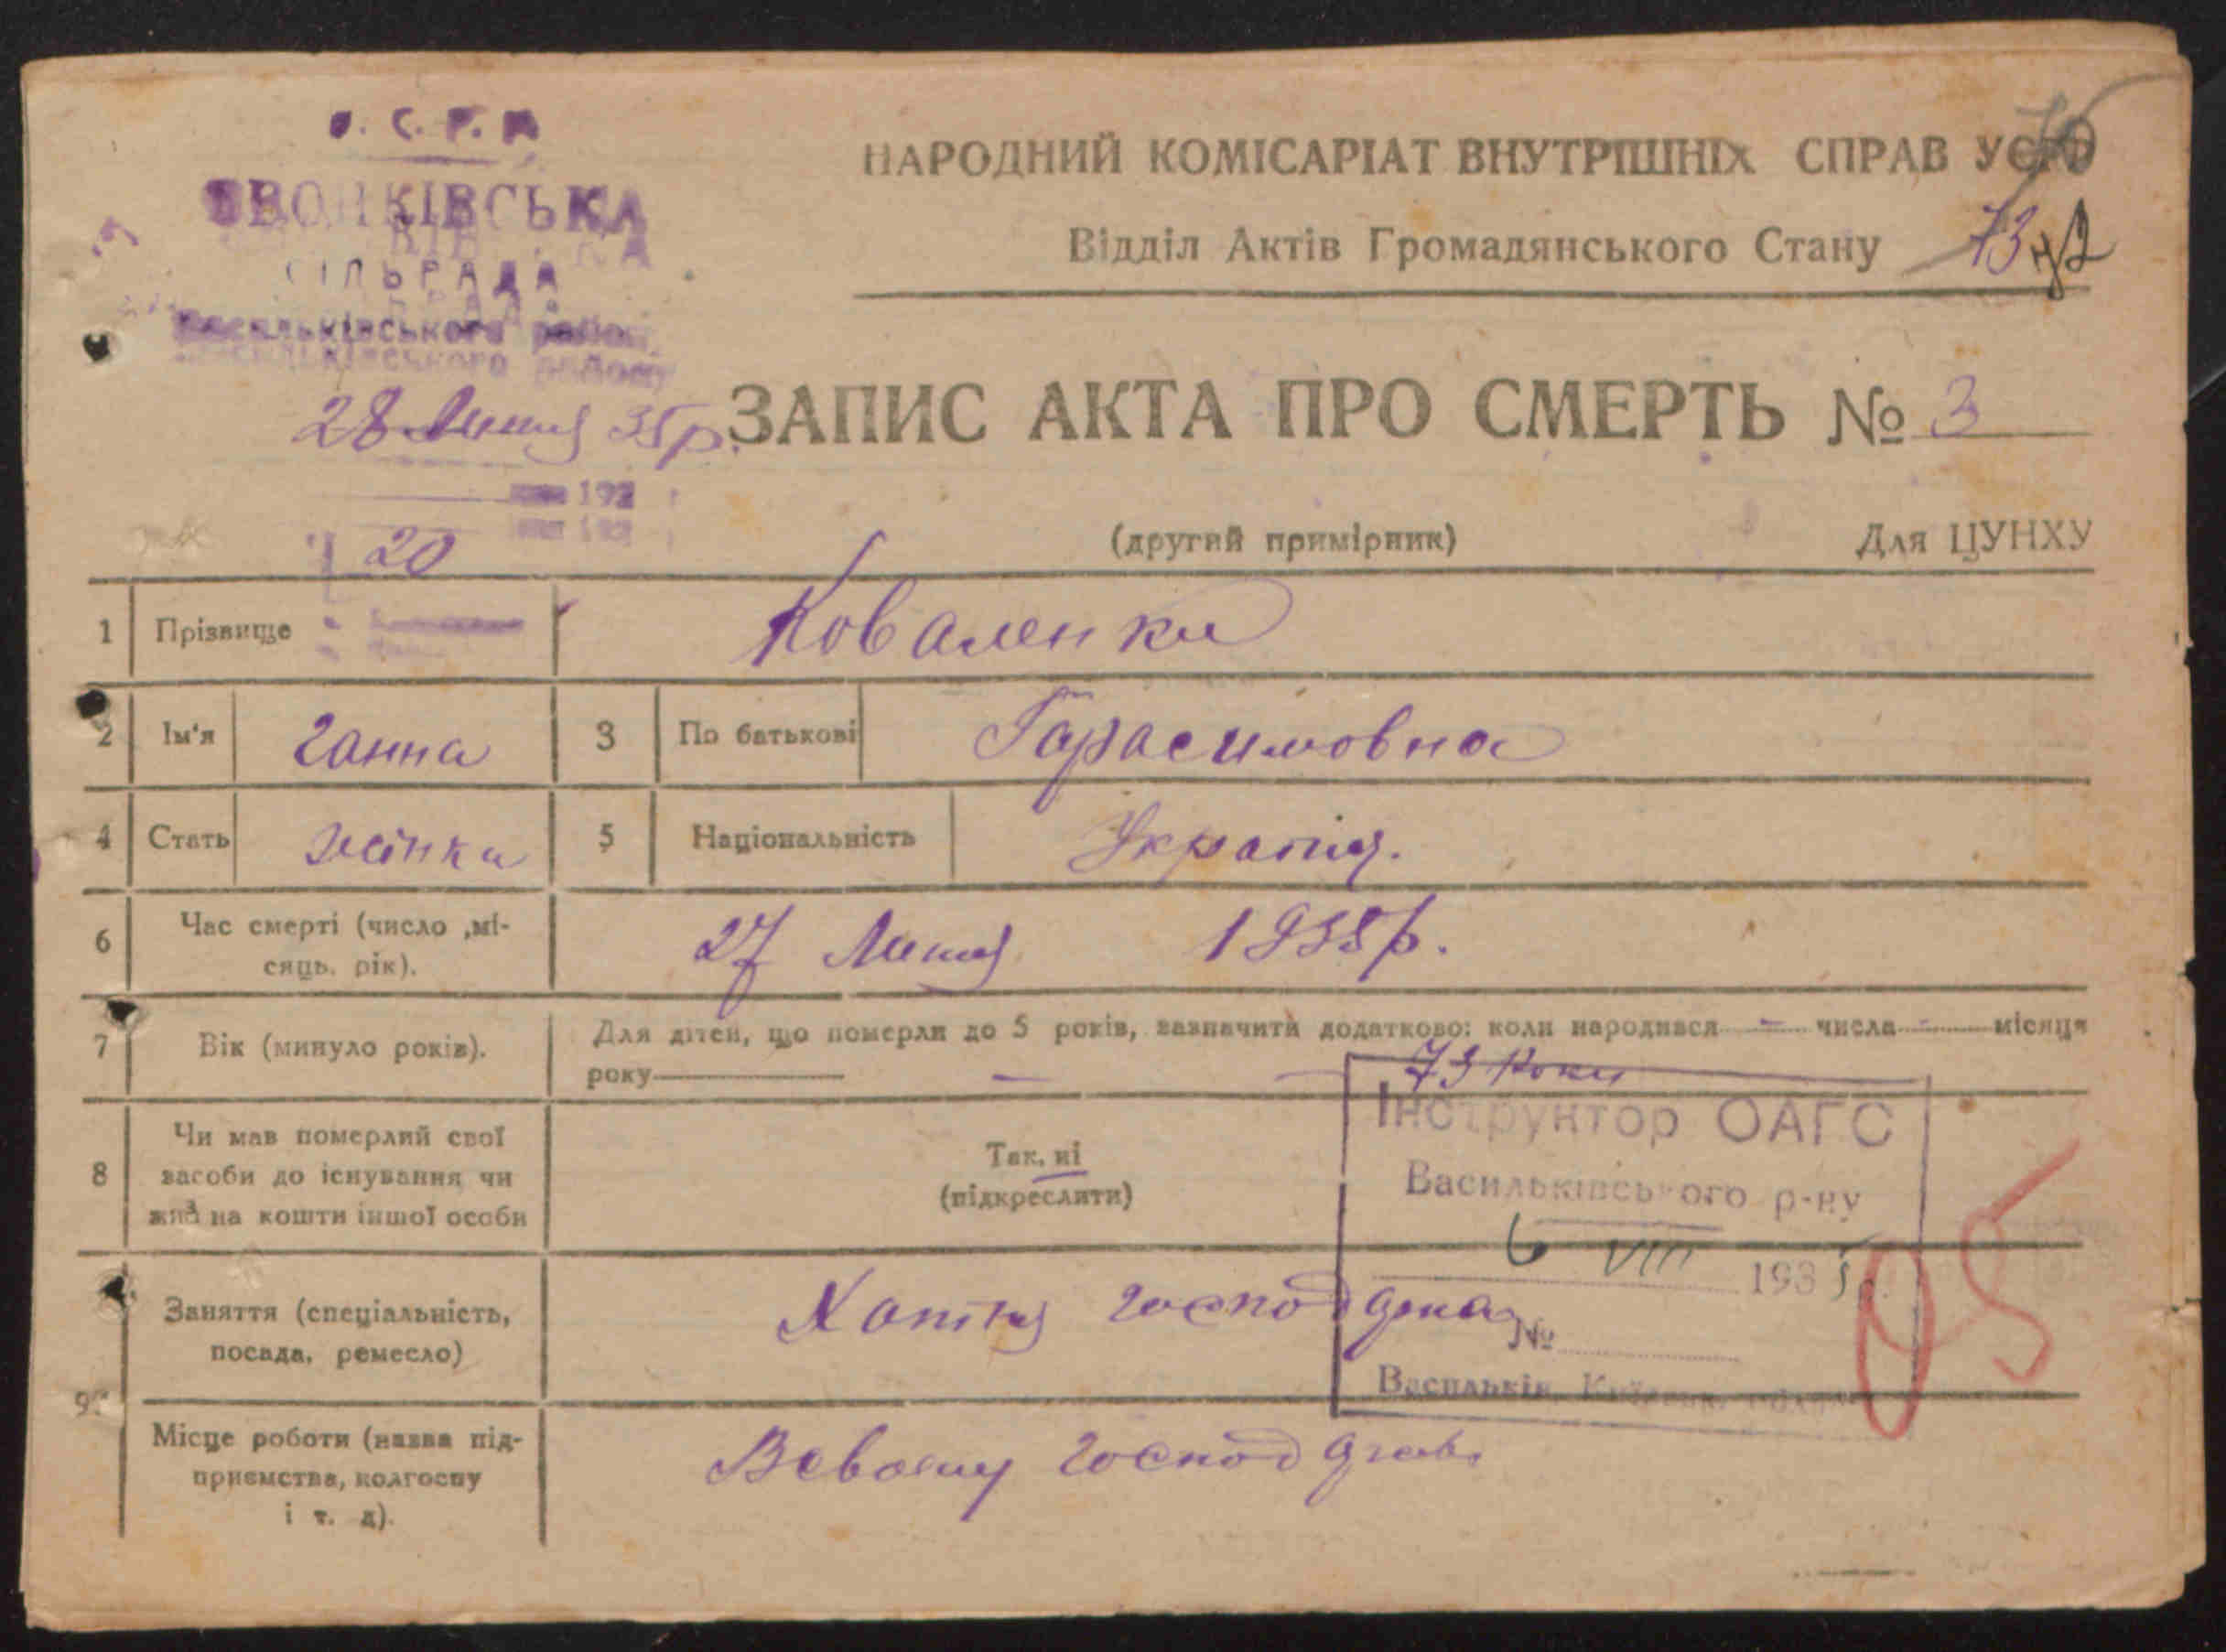 У. С. Р. Р.
ЗВОНКІВСЬКА
СІЛЬРАДА
Васильківського району
28 Липня 35 р.
192
20
НАРОДНИЙ КОМІСАРІАТ ВНУТРІШНІХ СПРАВ УСРР
70
Відділ Актів Громадянського Стану
73 42
ЗАПИС АКТА ПРО СМЕРТЬ № 3
(другий примірник) Для ЦУНХУ
1 Прізвище Коваленко
2 Ім'я Ганна 3 По батькові Гарасимовна
4 Стать жінка 5 Національність Україн.
6 Час смерті (число ,мі-
сяць, рік).
27 Липня 1935 р.
7 Вік (минуло років).
Для дітей, що померли до 5 років, зазначити додатково: коли народився – числа - місяця
року — 73 роки
8 Чи мав померлий свої
засоби до існування чи
жив на кошти іншої особи
Так, ні
(підкреслити)
Інструктор ОАГС
Васильківського р-ну
6 VIII 1935 р.
№
Васильків, Київськ. області
05
9. Заняття (спеціальність,
посада, ремесло)
Хатня господарка
Місце роботи (назва під-
приємства, колгоспу
і т. д).
Всвоему господ